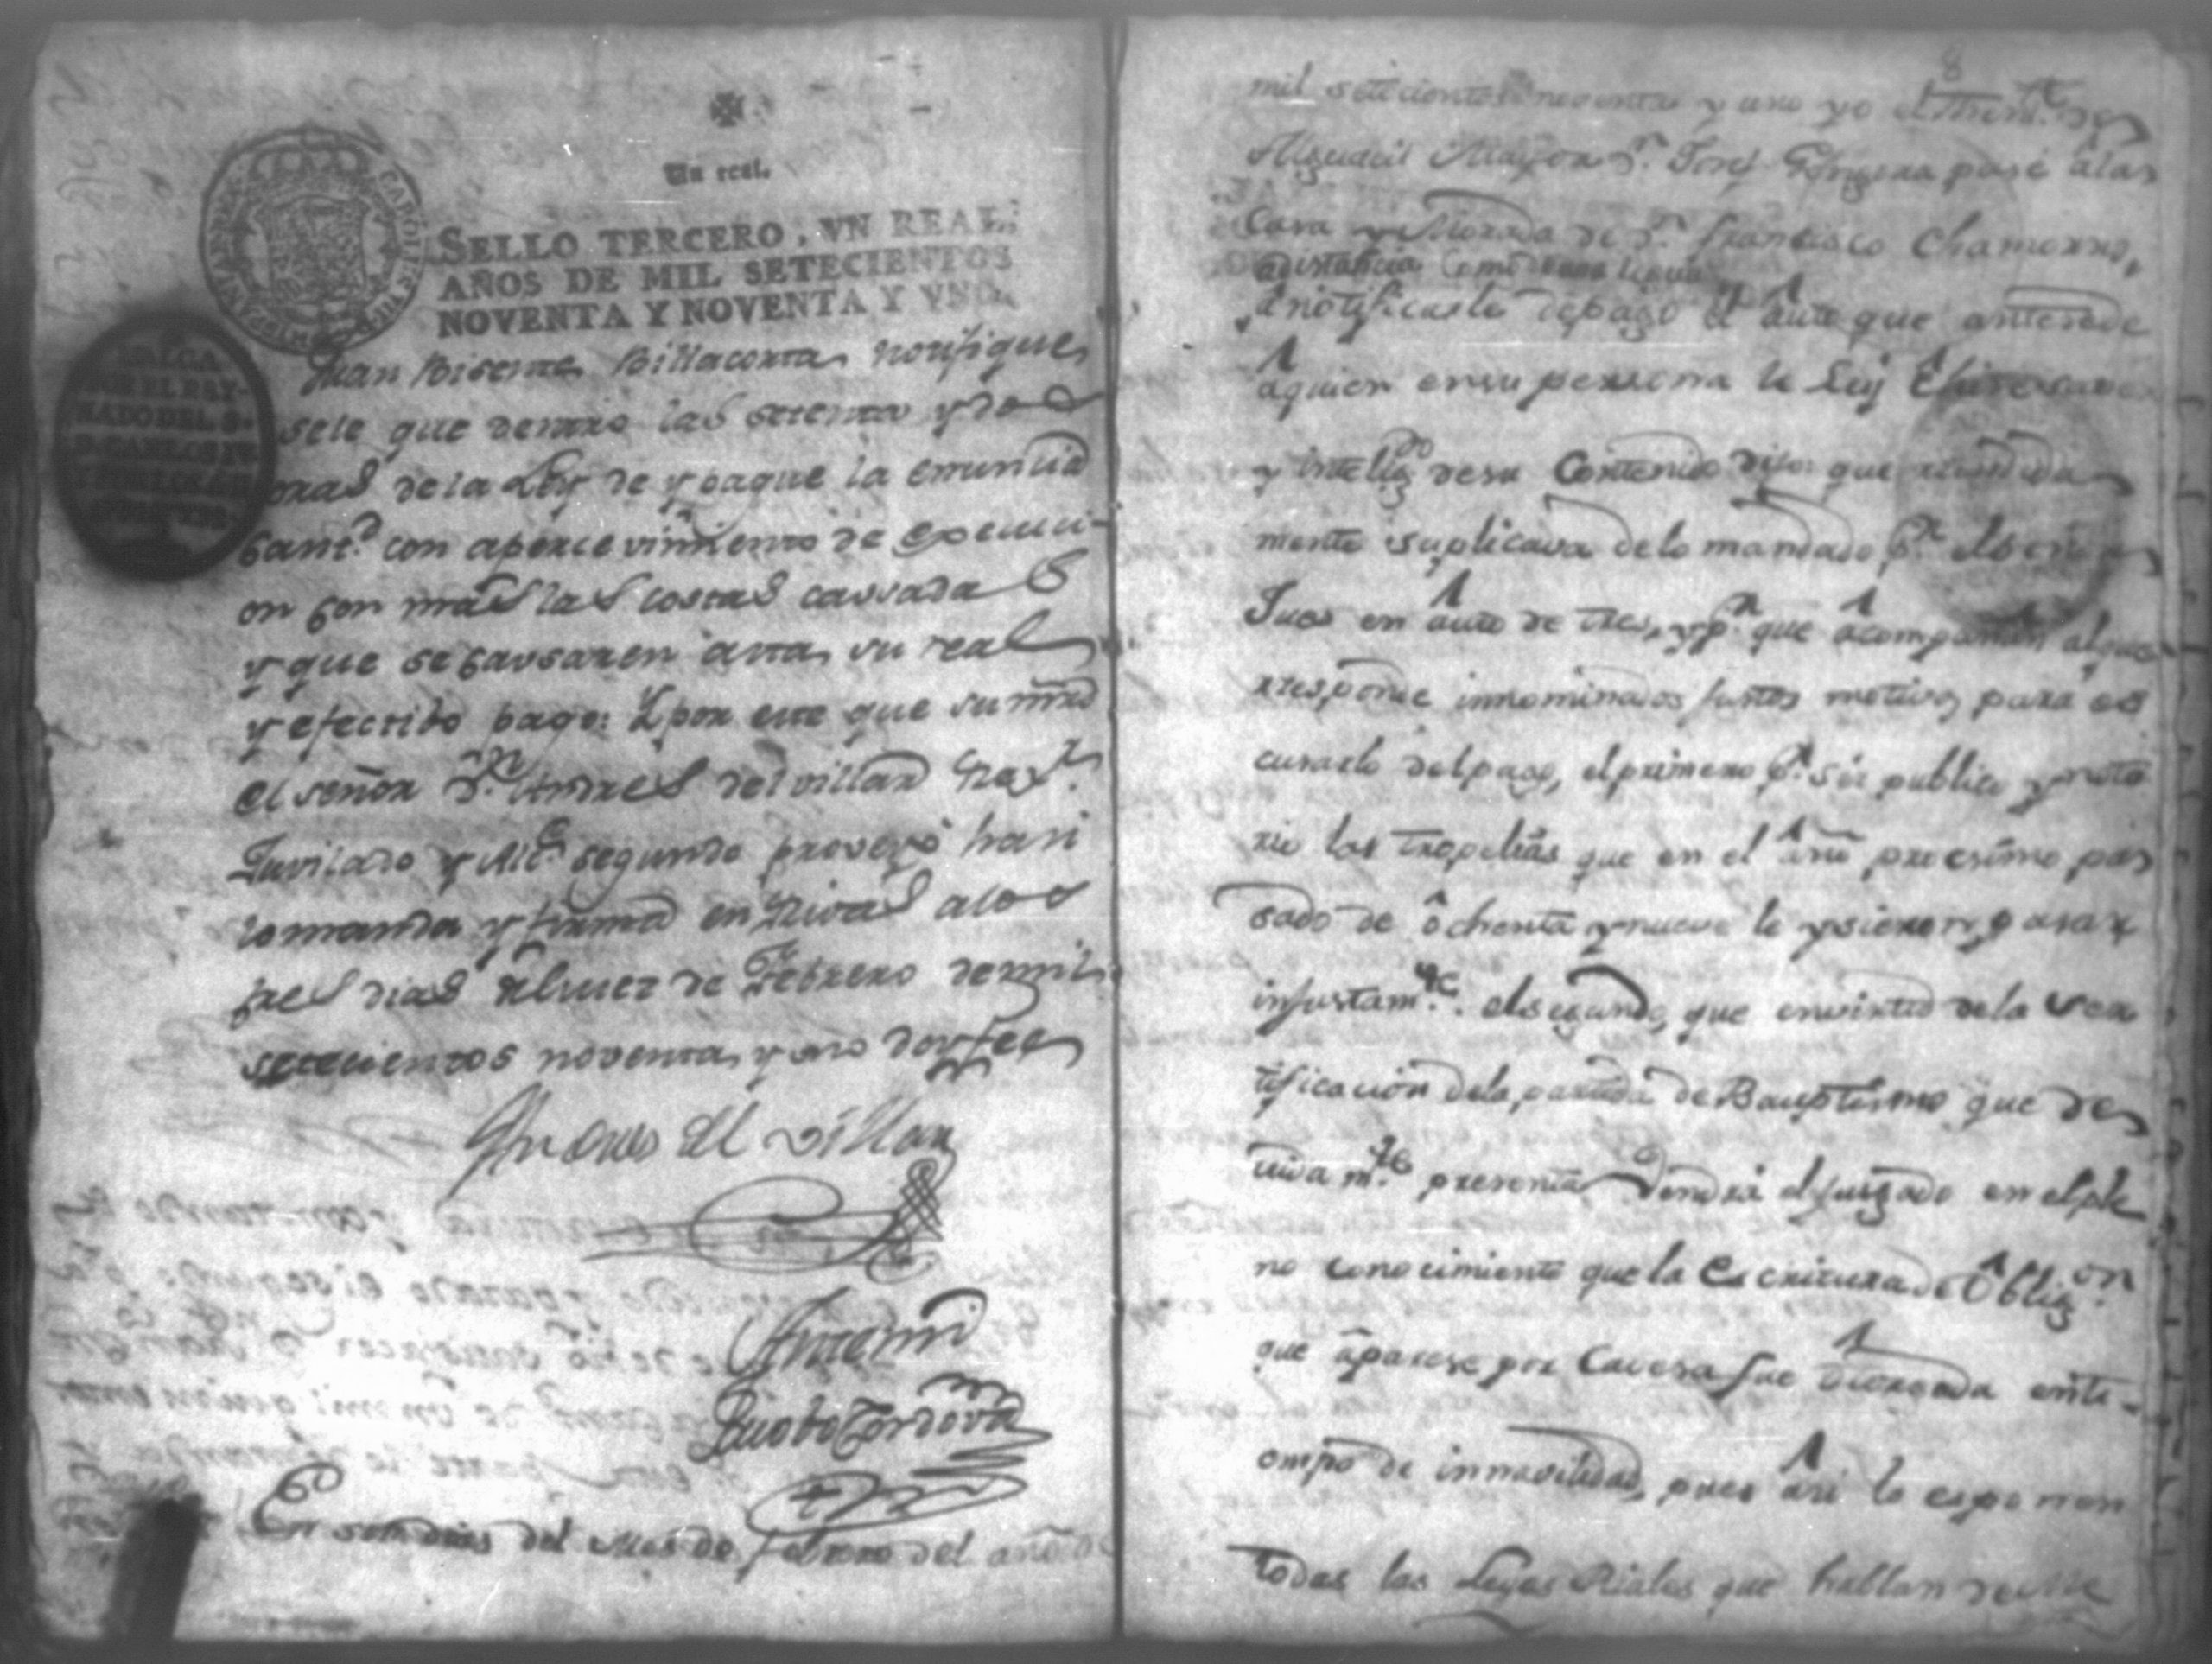 Un real.
SELLO TERCERO, VN REAL:
AÑOS DE MIL SETECIENTOS
NOVENTA Y NOVENTA Y VNO.
HISPANIAR REX CAROLUS
VALGA
POR EL REY-
NADO DEL S.
D. CARLOS IV.
Juan Bisente Billacorta notifique
sele que dentro las setenta y dos
oras de la Ley de y pague la enuncia
cant.ª con apercevimiento de execuci-
on con mas las costas caussadas
y que se caussaren asta su real
y efectibo pago: Y por este que su mrd
el señor D.n Andres del villar
Juvilado y Alc.e segundo proveyó hasi
lo manda y firma en Rivas a los
tres dias del mes de Febrero de mil
setecientos noventa y uno doy fee
Andres del villar
Antemi
Cordova
En seis dias del mes de febrero del año de
8
mil setecientos noventa y uno yo el Then.te de
Alguacil Mayor D.n Josef Gongora pasé a la
Casa y Morada de D.n Francisco Chamorro,
a notificarle depago el auto que antesede
a quien en su persona le Ley e hise saver
y intelig.do de su Contenido dijo: que rendida
mente suplicava de lo mandado p.r el señor
Jues en auto de tres, y p.r que acompañan al que
responde innominados justos motivos para es
cusarlo del pago, el primero p.r ser publico y noto
rio las tropelias que en el año procsimo pas
sado de ochenta y nueve le ysieron pasar
injustam.te: el segundo, que en virtud de la Ser
tificacion dela partida de Bauptismo que de
vida m.te presenta tendrá el jusgado en el ple
no conocimiento que la Escritura de Oblig.on
que aparese por Cavesa fue otorgada enti-
empo de innavilidad, pues asi lo esponen
todas las Leyes Riales que hablan de